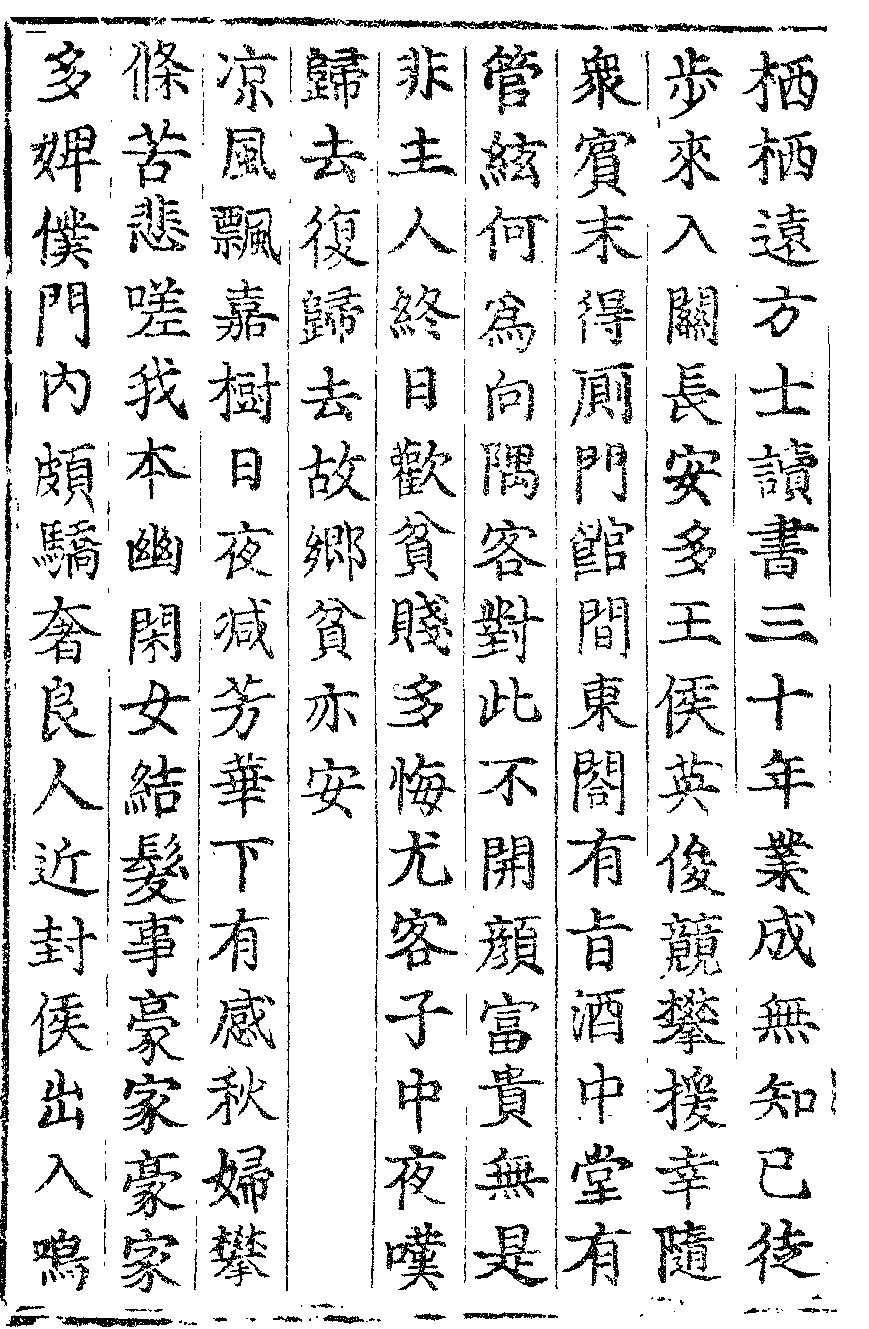 栖栖遠方士讀書三十年業成無知已徒
步來入關長安多王侯英俊競攀援幸隨
衆賓末得厠門館間東閣有旨酒中堂有
管絃何為向隅客對此不開顔富貴無是
非主人終日歡貧賤多悔尤客子中夜嘆
歸去復歸去故鄉貧亦安
凉風飄嘉樹日夜减芳華下有感秋婦攀
條苦悲嗟我本幽閑女結髮事豪家豪家
多婢僕門内頗驕奢良人近封侯出入鳴